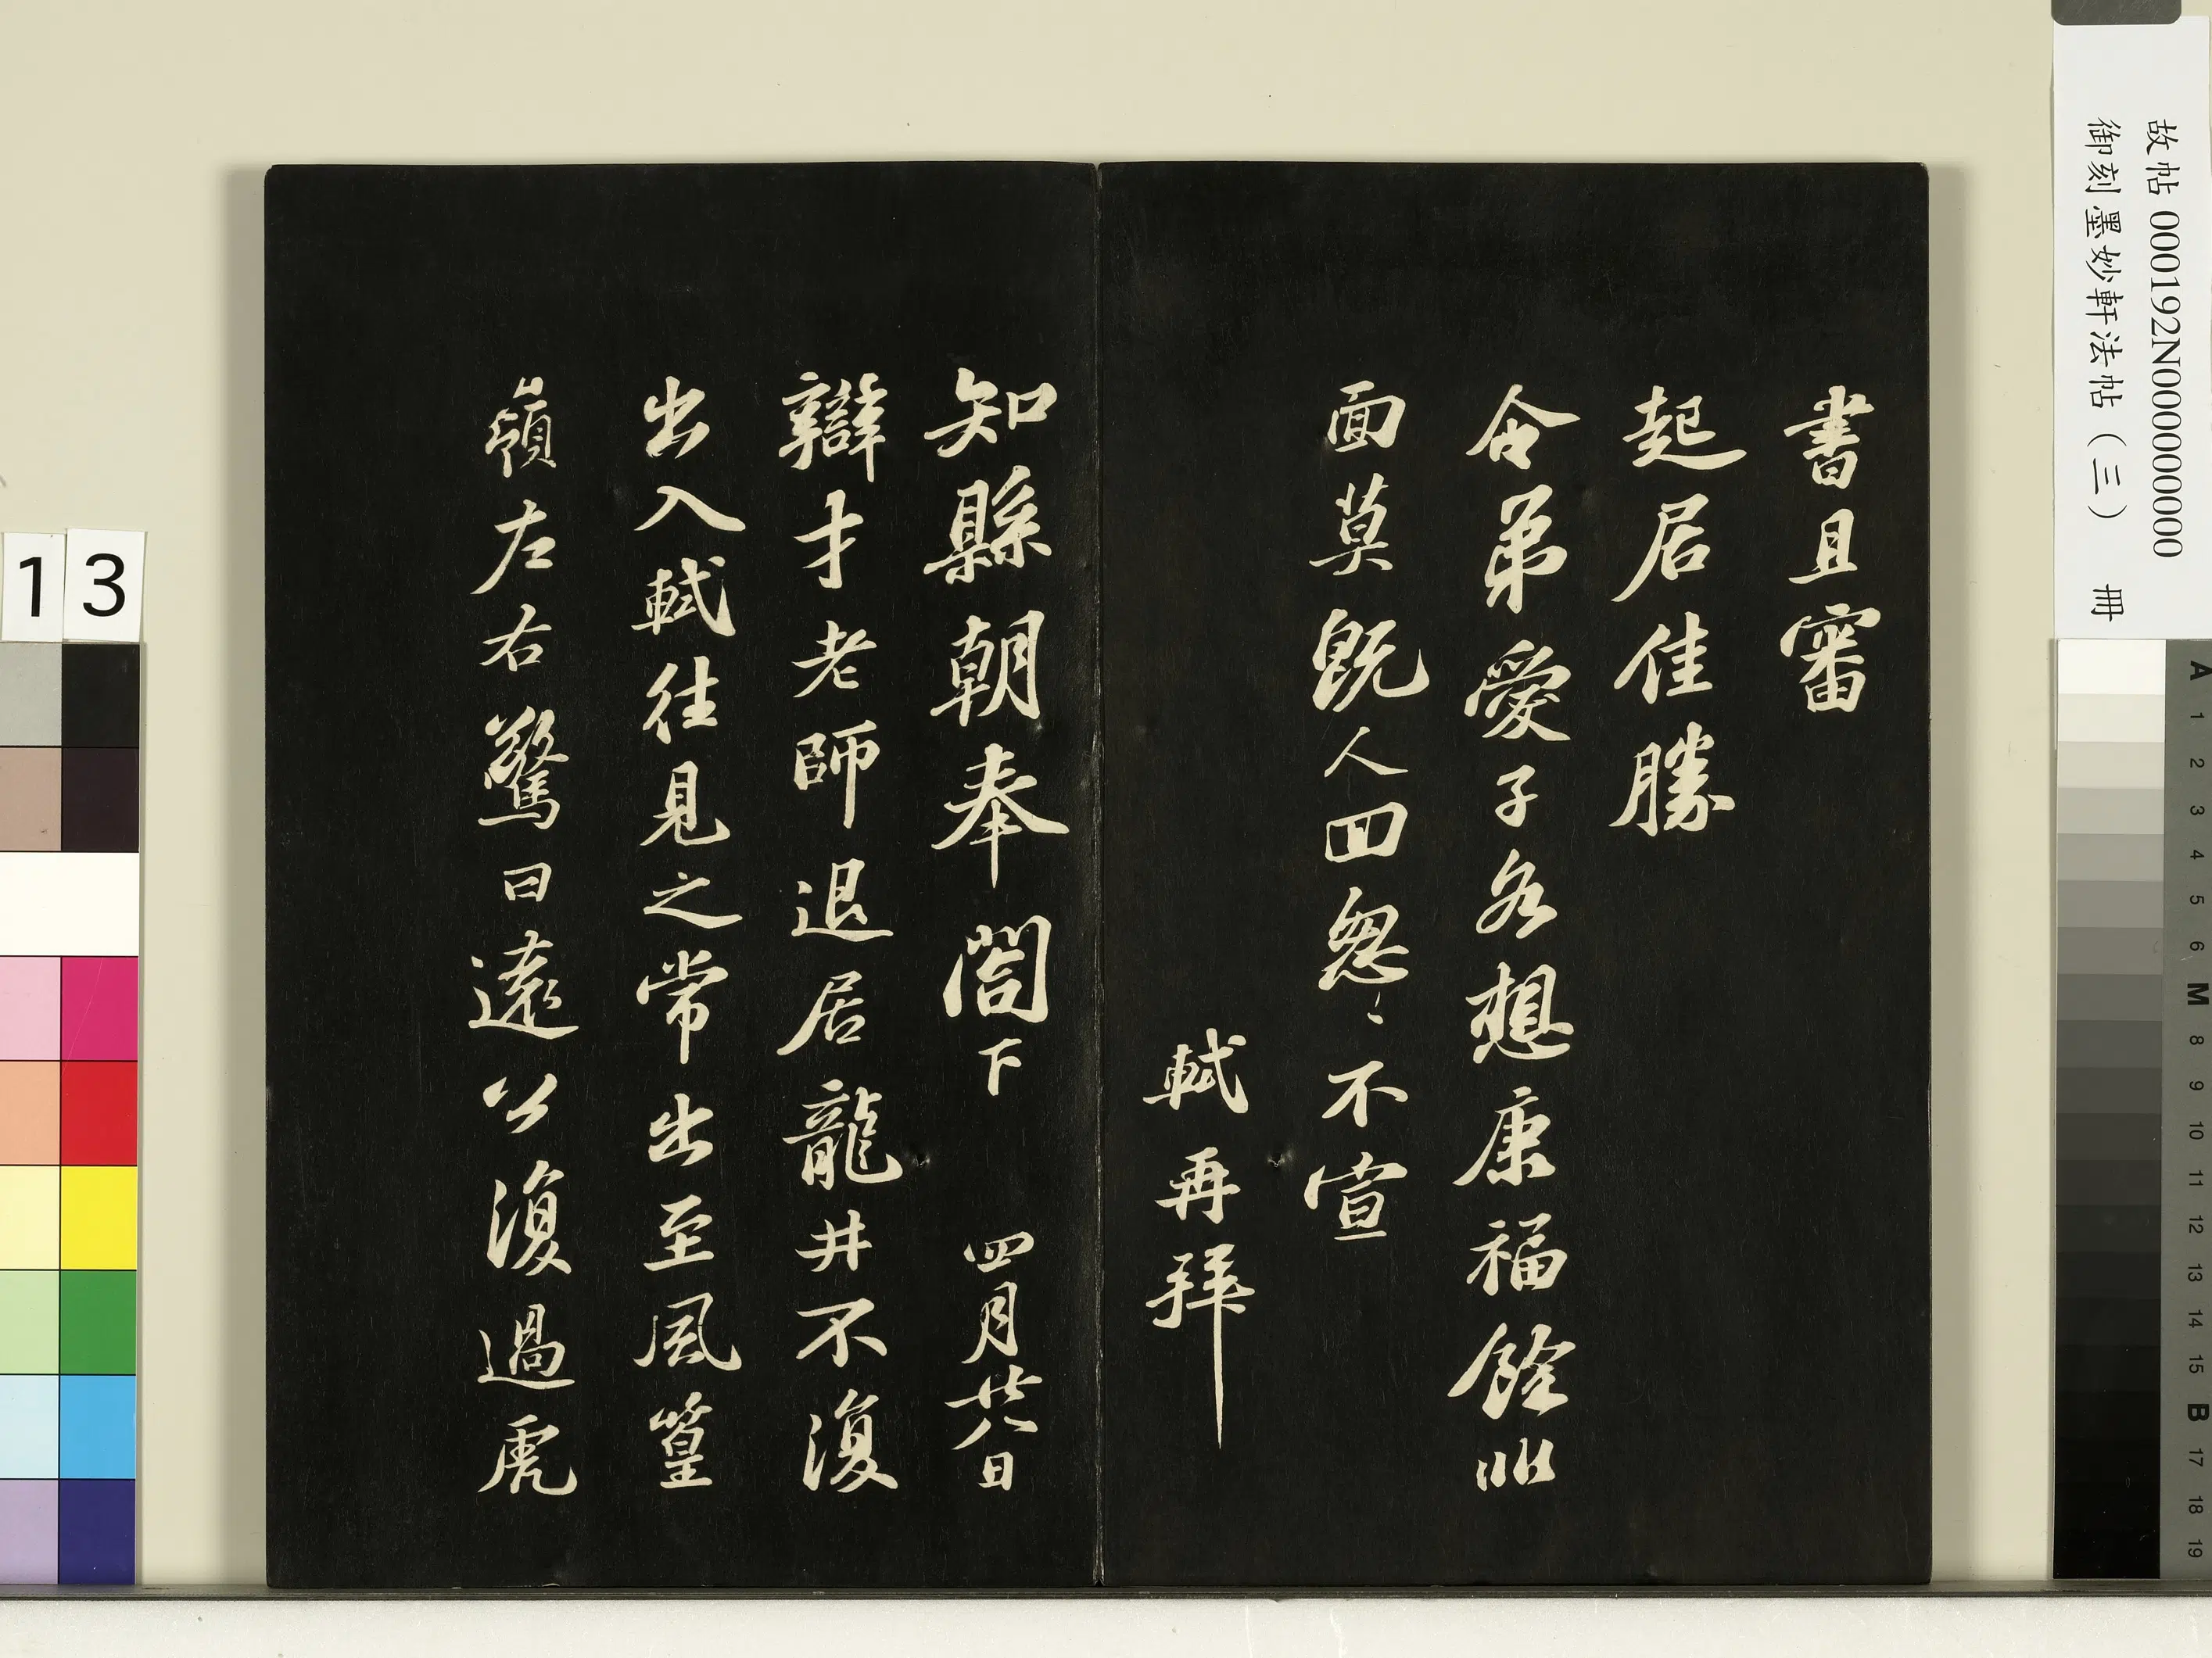 故帖 000192N000000000
御刻墨妙軒法帖（三） 冊
書且審
起居佳勝
令弟愛子各想康福餘非
面莫既人回怱〻不宣
軾再拜
知縣朝奉閤下 四月廿八日
辯才老師退居龍井不復
出入軾往見之常出至風篁
嶺左右驚曰遠公復過虎
13
A 1 2 3 4 5 6 M 8 9 10 11 12 13 14 15 B 17 18 19